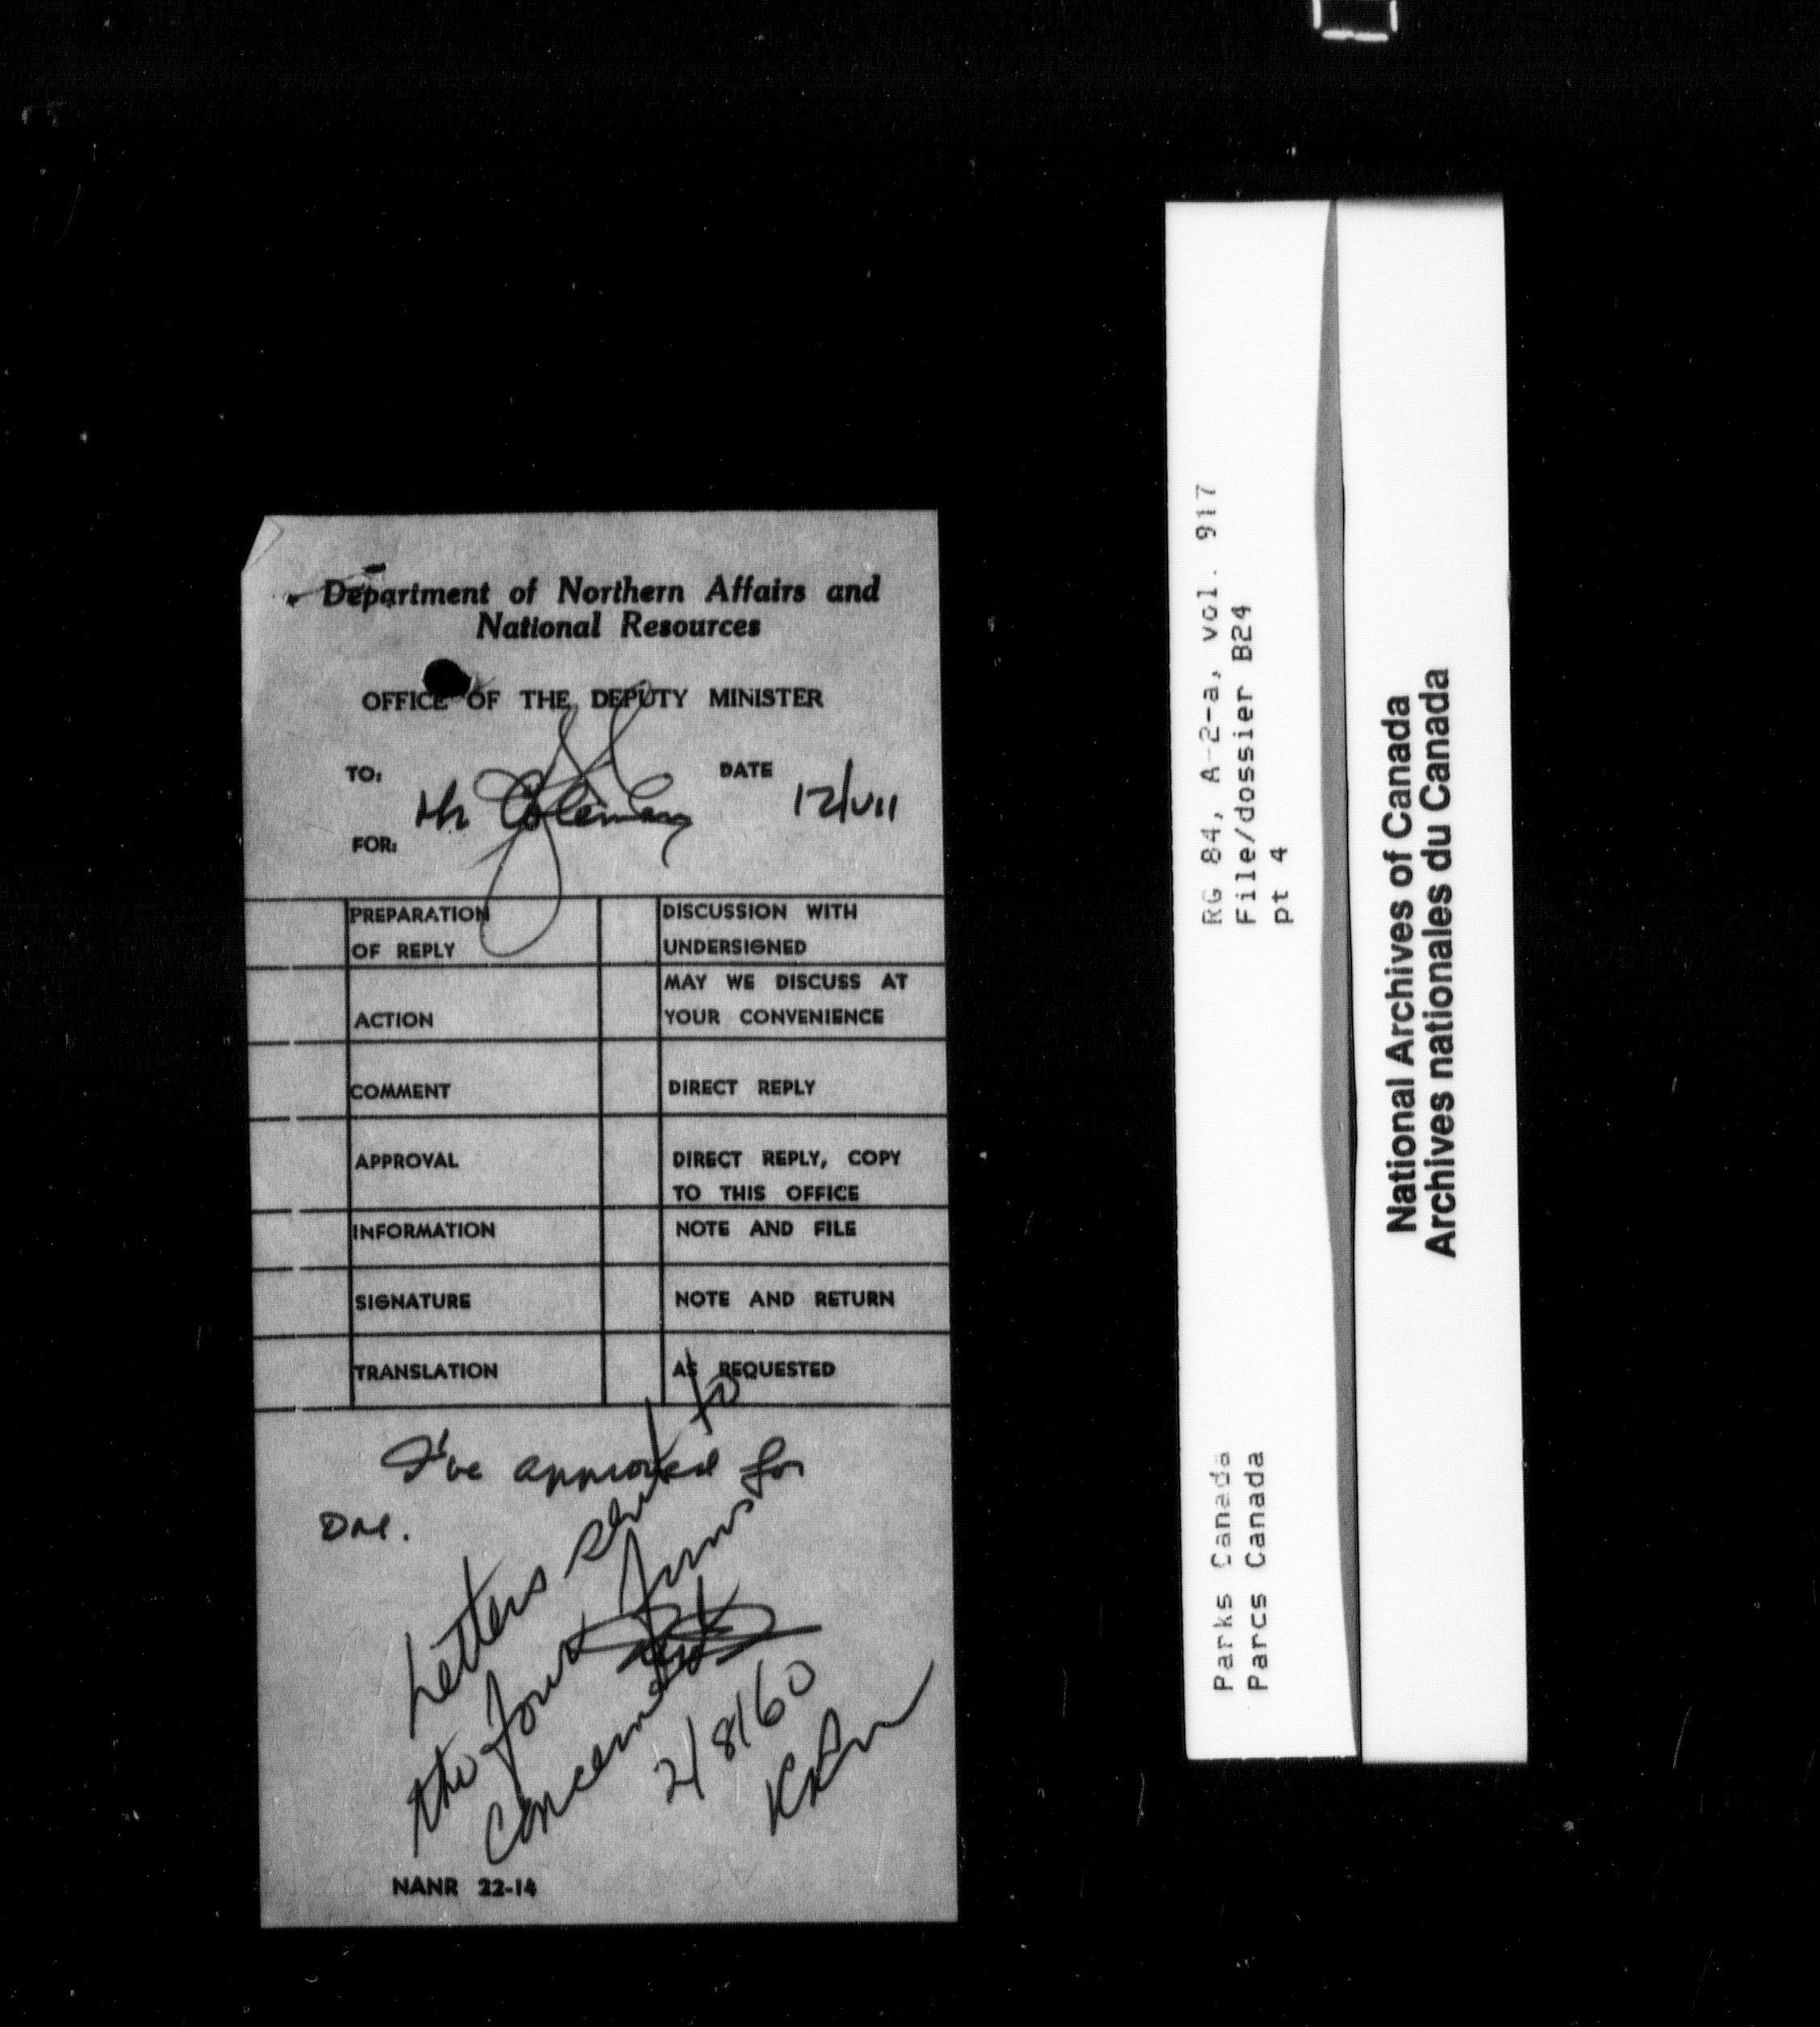 Department of Northern Affairs and
National Resources
OFFICE OF THE DEPUTY MINISTER
TO: Mr Coleman
DATE 12/VII
FOR:
PREPARATION
OF REPLY
DISCUSSION WITH
UNDERSIGNED
ACTION
MAY WE DISCUSS AT
YOUR CONVENIENCE
COMMENT
DIRECT REPLY
APPROVAL
DIRECT REPLY, COPY
TO THIS OFFICE
INFORMATION
NOTE AND FILE
SIGNATURE
NOTE AND RETURN
TRANSLATION
AS REQUESTED
I've approved for
Letters sent to
the four firms
concerned
2/8/60
NANR 22-14
RG 84, A-2-a, vol. 917
File/dossier B24
pt 4
Parks Canada
Parcs Canada
National Archives of Canada
Archives nationales du Canada